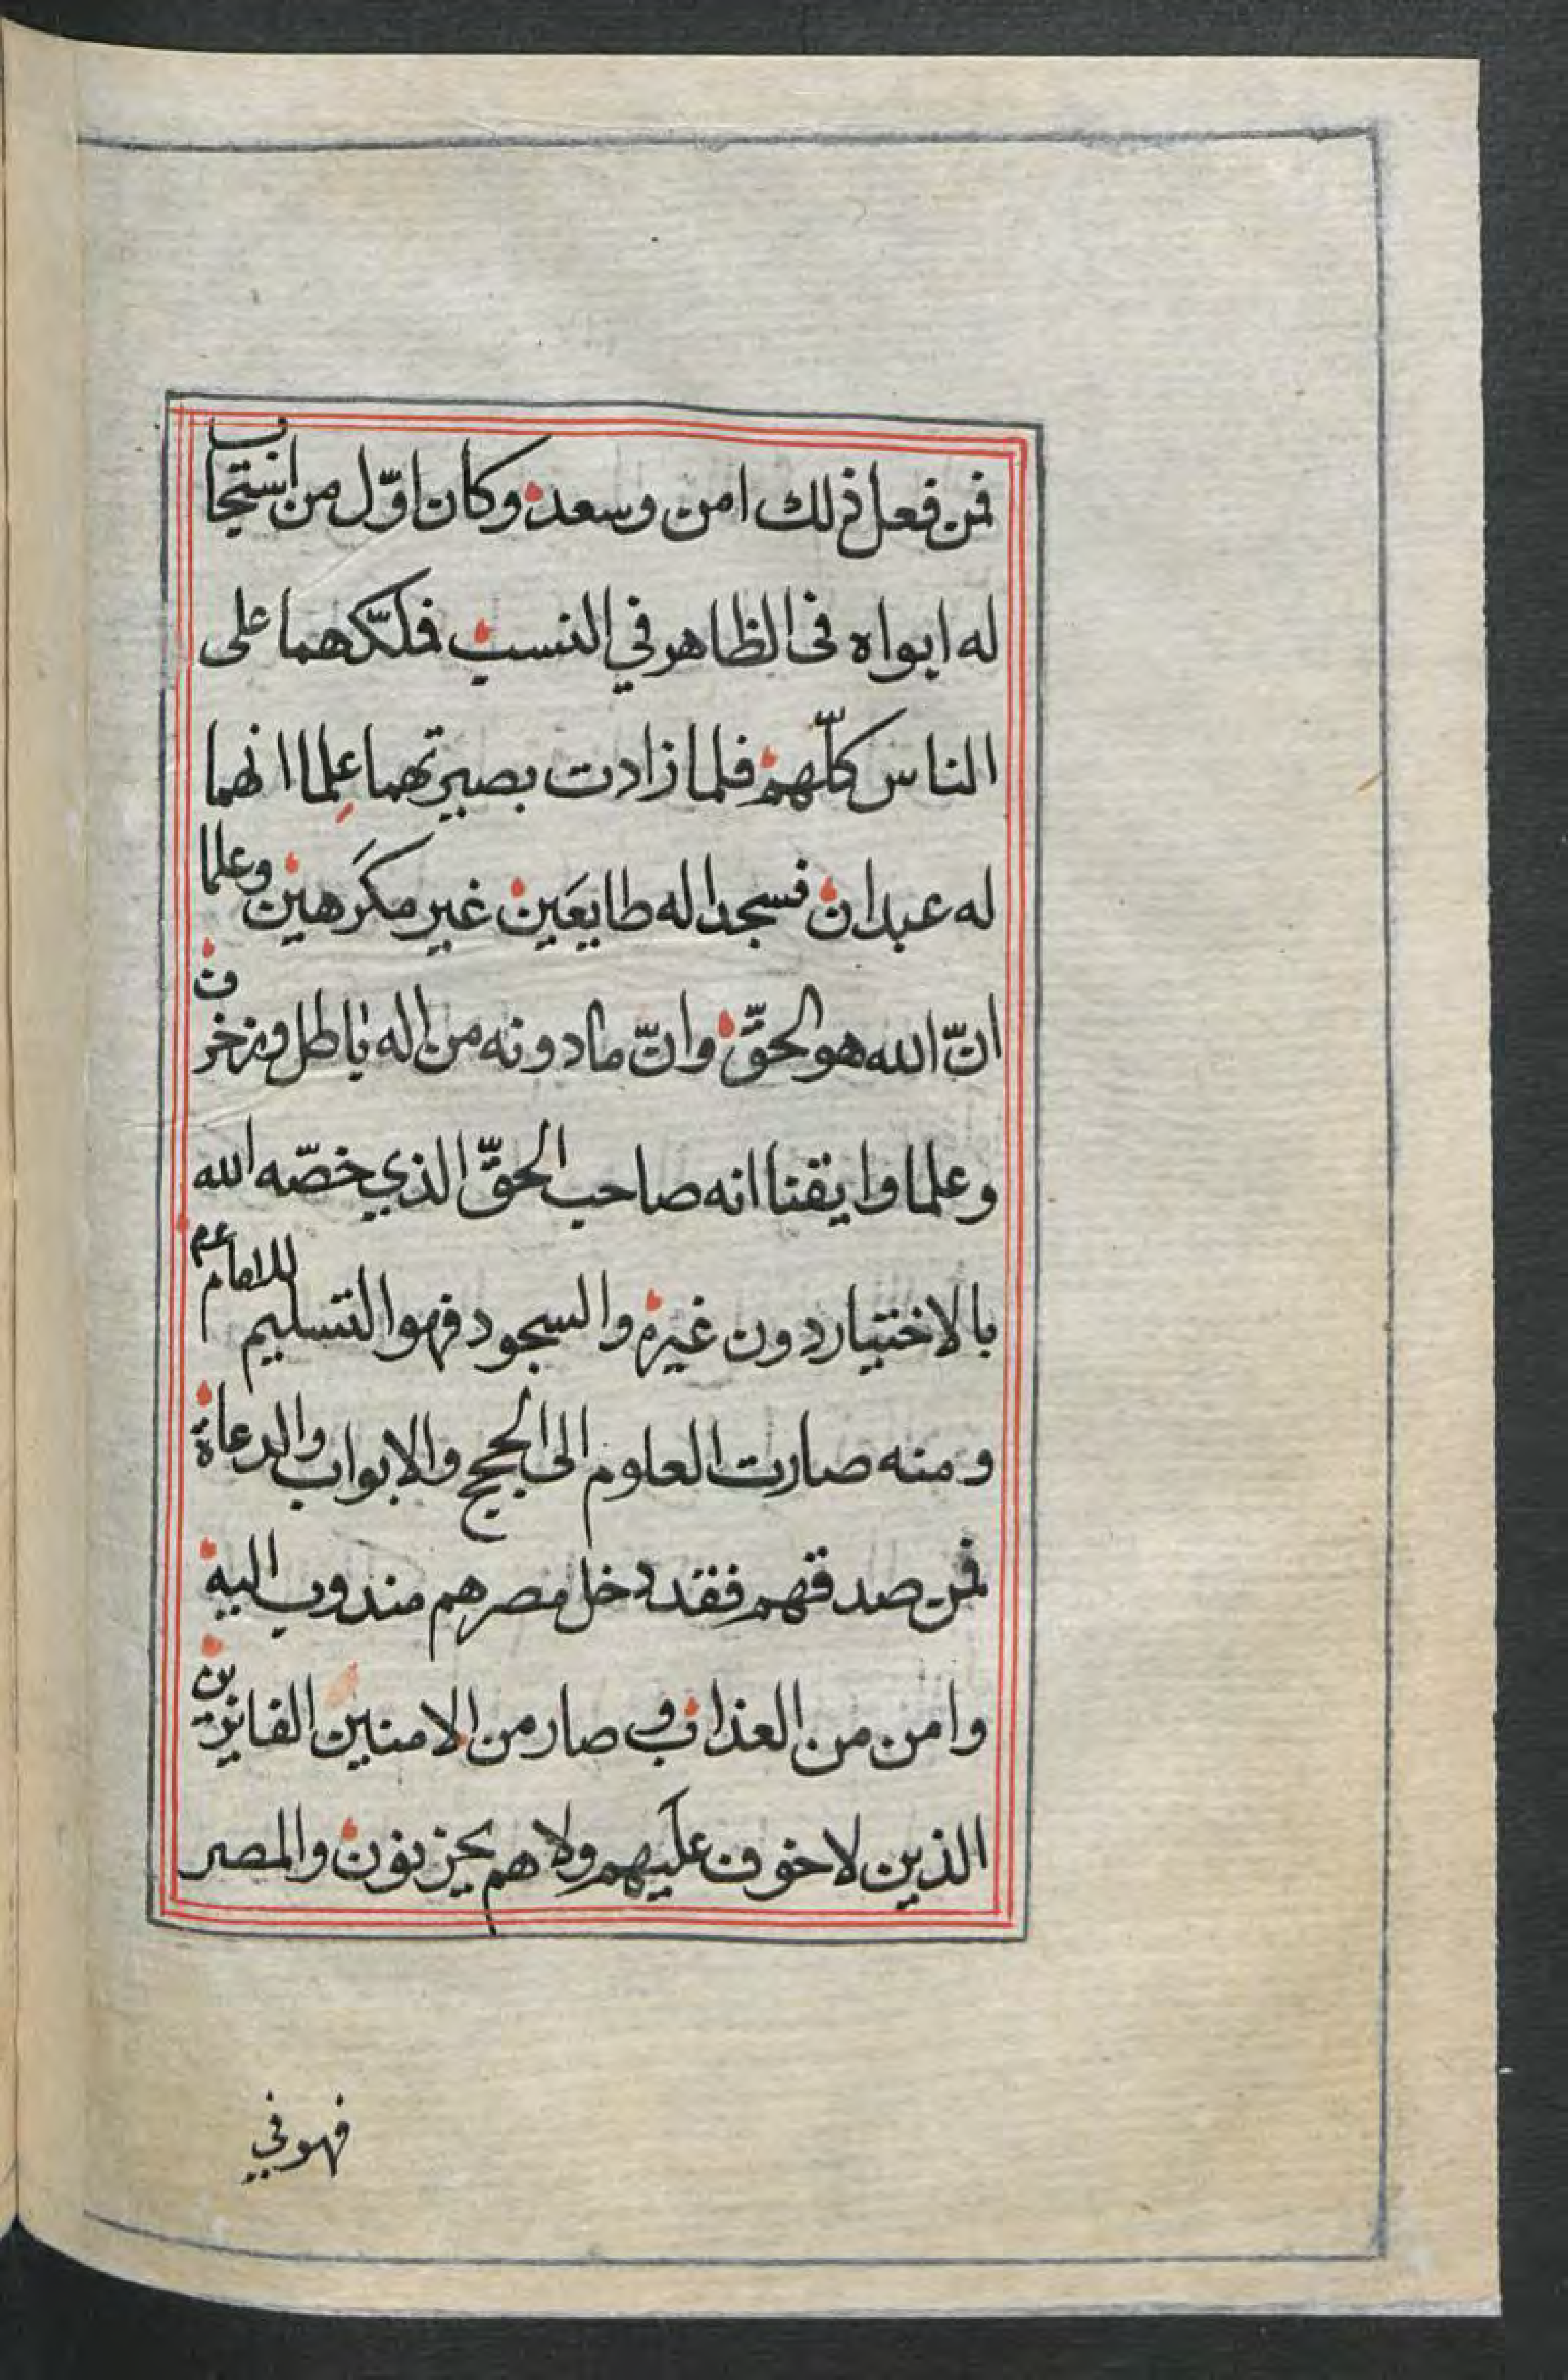 فمن فعل ذلك امن وسعد وكان اوّل من استجاب
له ابواه فى الظاهر في النسب فملّكهما على
الناس كلّهم فلما زادت بصيرتهما علما انهما
له عبدان فسجدا له طايعَين غير مكرَهين وعلما
انّ الله هو الحقّ وانّ ما دونه من اله باطل وزخرف
وعلما وايقنا انه صاحب الحقّ الذي خصّه الله
بالاختيار دون غيره والسجود فهو التسليم للامام عم
ومنه صارت العلوم الى الحجج والابواب والدعاة
فمن صدقهم فقد دخل مصرهم مندوب اليه
وامن من العذاب وصار من الامنين الفايزين
الذين لا خوف علَيهم ولا هم يحزنون والمصر
فهو في